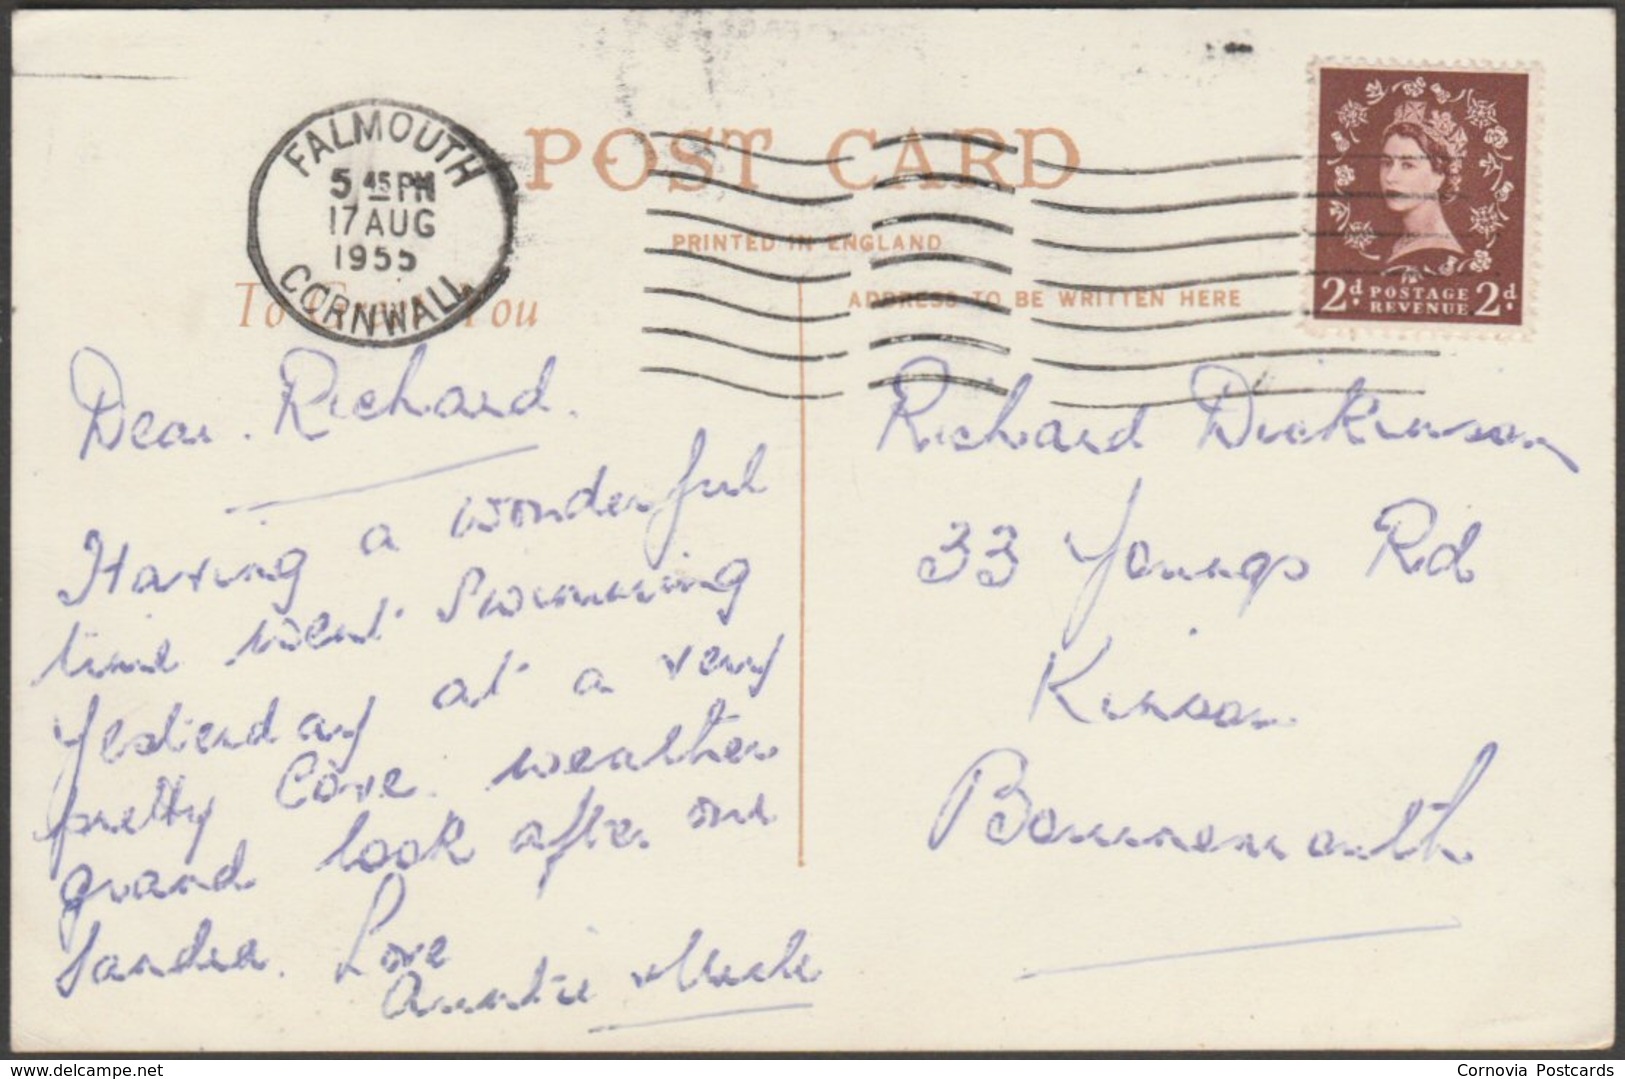 POST CARD
FALMOUTH
5 45 PM
17 AUG
1955
CORNWALL
PRINTED IN ENGLAND
ADDRESS TO BE WRITTEN HERE
To You
2d POSTAGE 2d
REVENUE
Dear. Richard.
Having a wonderful
time went swimming
yesterday at a very
pretty Cove. weather
grand look after our
Sandra. Love
Auntie
Richard Dickinson
33 Youngs Rd
Kinson
Bournemouth
delcampe.net
Cornovia Postcards